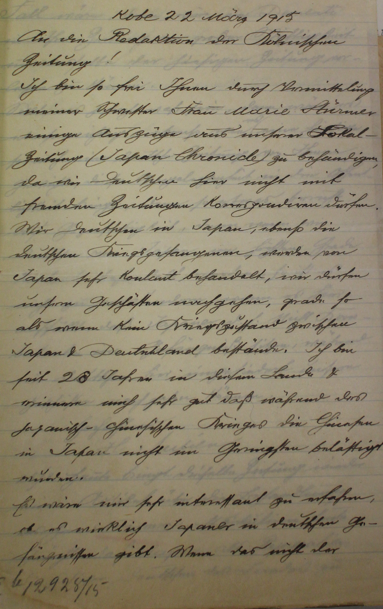 Kobe 22 März 1915
An die Redaktion der Kölnischen
Zeitung!
Ich bin so frei Ihnen durch Vermittelung
meiner Schwester Frau Marie
einige Auszüge aus unserer Lokal-
Zeitung (Japan Chronicle) zu behändigen,
da wir Deutschen hier nicht mit
fremden Zeitungen korrespondiren dürfen.
Wir Deutschen in Japan, ebenso die
deutschen Kriegsgefangenen, werden von
Japan sehr koulant behandelt, wir dürfen
unsern Geschäften nachgehen, grade so
als wenn kein Kriegszustand zwischen
Japan & Deutschland bestände. Ich bin
seit 28 Jahren in diesem Lande &
erinnere mich sehr gut daß während des
Japanisch-Chinesischen Krieges die Chinesen
in Japan nicht im Geringsten belästigt
wurden.
Es wäre mir sehr interessant zu erfahren,
ob es wirklich Japaner in deutschen Ge-
fängnissen gibt. Wenn das nicht der
12925/15